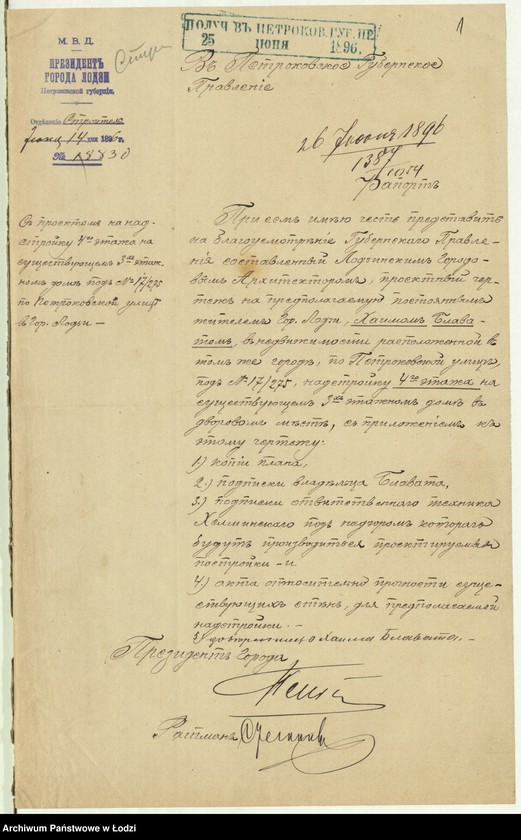 1
ПОЛУЧ. ВЪ ПЕТРОКОВ. ГУБ. ПР.
25 ІЮНЯ 1896.
М. В. Д.
ПРЕЗИДЕНТЪ
ГОРОДА ЛОДЗИ
Петроковской губерніи.
Отдѣленіе Строител.
Іюня 14 дня 1896 г.
№ 18830
Въ Петроковское Губернское
Правленіе
26 Іюня 1896
1387
Рапортъ
Съ проектомъ на над-
стройку 4го этажа на
существующемъ 3хъ этаж-
номъ домѣ подъ № 17/275
по Петроковской улицѣ
въ гор. Лодзи —
При семъ имѣю честь представить
на благоусмотрѣніе Губернскаго Правле-
нія составленный Лодзинскимъ Городо-
вымъ Архитекторомъ, проектный чер-
тежъ на предполагаемую постояннымъ
жителемъ гор. Лодзи, Хаимомъ Блава-
томъ, въ недвижимости расположенной въ
томъ же городѣ, по Петроковской улицѣ,
подъ № 17/275, надстройку 4го этажа на
существующемъ 3хъ этажномъ домѣ въ
дворовомъ мѣстѣ, съ приложеніемъ къ
этому чертежу:
1) копіи плана,
2) подписки владѣльца Блавата,
3) подписки отвѣтственнаго техника
Хелминскаго подъ надзоромъ котораго
будутъ производиться проектируемая
постройки — и
4) акта относительно прочности суще-
ствующихъ стѣнъ, для предполагаемой
надстройки. —
Хаима Блавата. —
Президентъ Города
Ратманъ
Archiwum Państwowe w Łodzi